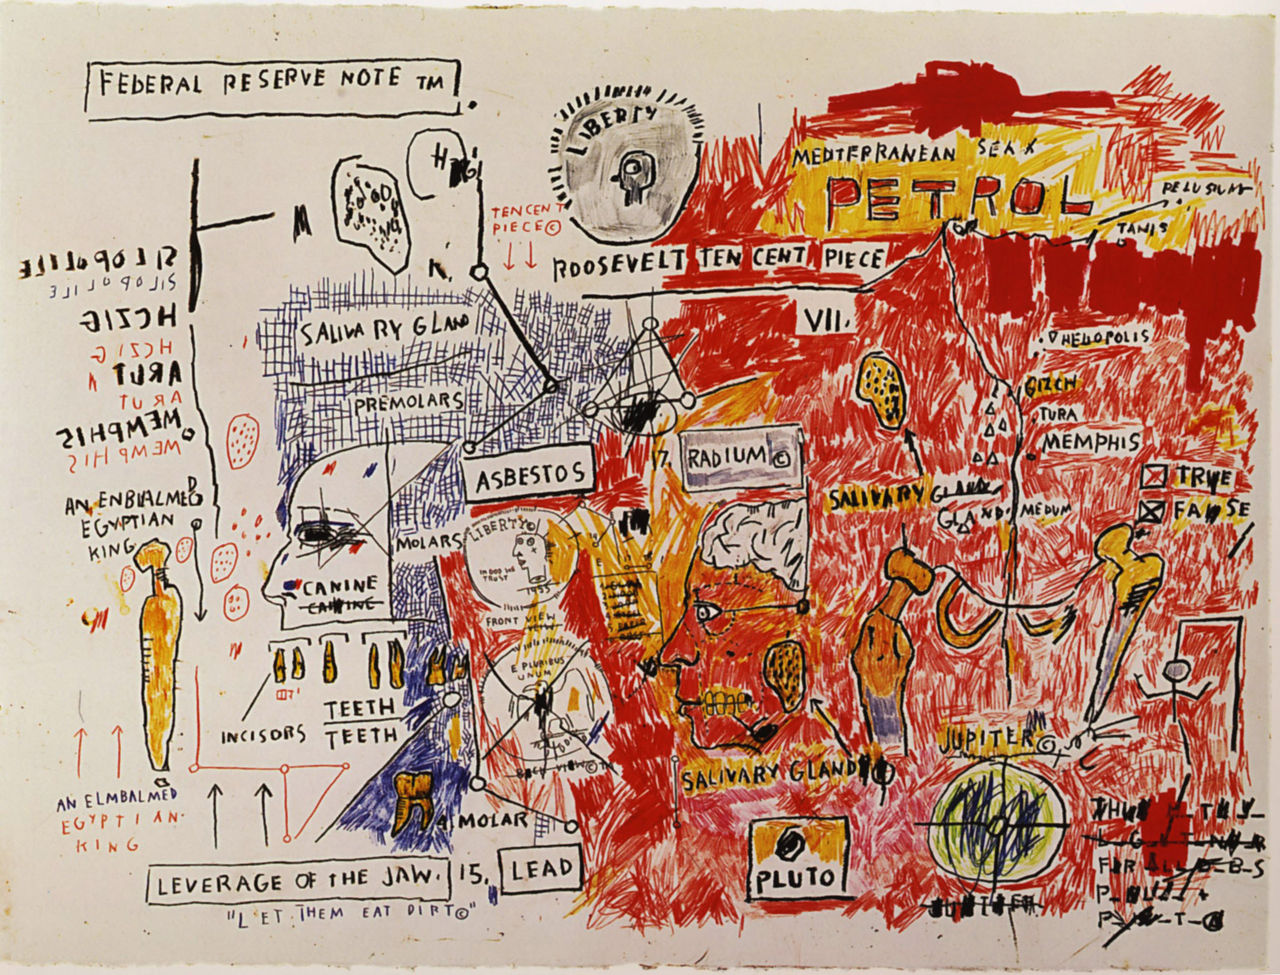 FEDERAL RESERVE NOTE TM.
LIBERTY
MEDITERRANEAN SEA X
PETROL
PELUSIUM
TANIS
M
K.
TEN CENT
PIECE©
↓ ↓
ROOSEVELT TEN CENT PIECE
VII.
SILOPOLILE
SILOPOLILE
HCZIG
HCZIG
ARUT
ARUT
MEMPHIS
MEMPHIS
SALIVARY GLAND
PREMOLARS
MOLARS
CANINE
CANINE
ASBESTOS
17.
RADIUM©
HELIOPOLIS
GIZEH
TURA
MEMPHIS
TRUE
FALSE
SALIVARY GLAND
GLAND
MEDUM
AN ENBALMED
EGYPTIAN
KING
LIBERTY
IN GOD WE
TRUST
1955
FRONT VIEW
E PLURIBUS
UNUM
BACK VIEW©TM
INCISORS
TEETH
TEETH
AN ELMBALMED
EGYPTIAN.
KING
A MOLAR
SALIVARY GLAND
JUPITER©
PLUTO
LEVERAGE OF THE JAW.
15.
LEAD
"LET THEM EAT DIRT©"
JUPITER
FOR ALL